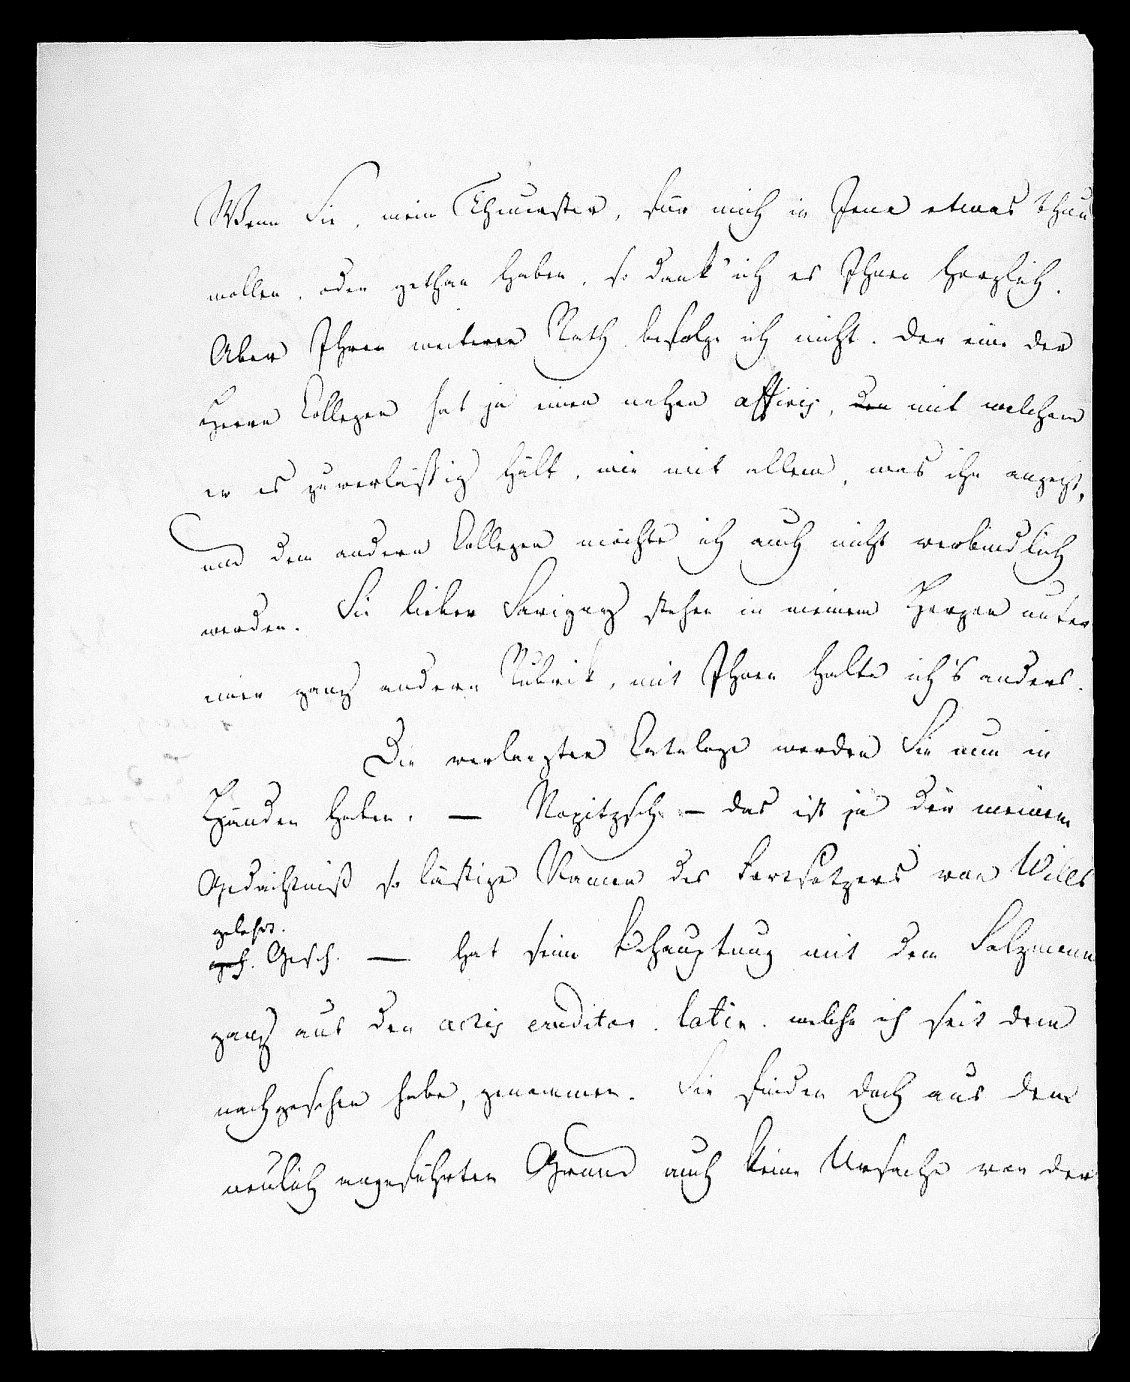 Wenn Sie, mein Theuerster, für mich in Jena etwas thun
wollen, oder gethan haben, so dank' ich es Ihnen herzlich.
Aber Ihren weiteren Rath befolge ich nicht. Der eine der
Herrn Collegen hat ja einen nahen affinis, den mit welchem
er es zuverläßig hält, wie mit allem, was ihn angeht,
und dem andern Collegen möchte ich auch nicht verbindlich
werden. Sie lieber Savigny stehen in meinem Herzen unter
einer ganz andern Rubrik, mit Ihnen halte ich's anders.
Die verlangten Cataloge werden Sie nun in
Händen haben. — Nopitzsch — das ist ja der meinem
Gedächtniß so lästige Namen des Fortsetzers von Wills
gelehrt.
gesch. Gesch. — hat seine Behauptung mit dem Salzmann
ganz aus den actis eruditor. latin. welche ich seit dem
nachgesehen habe, genommen. Sie finden doch aus dem
neulich angeführten Grund auch keine Ursache von der